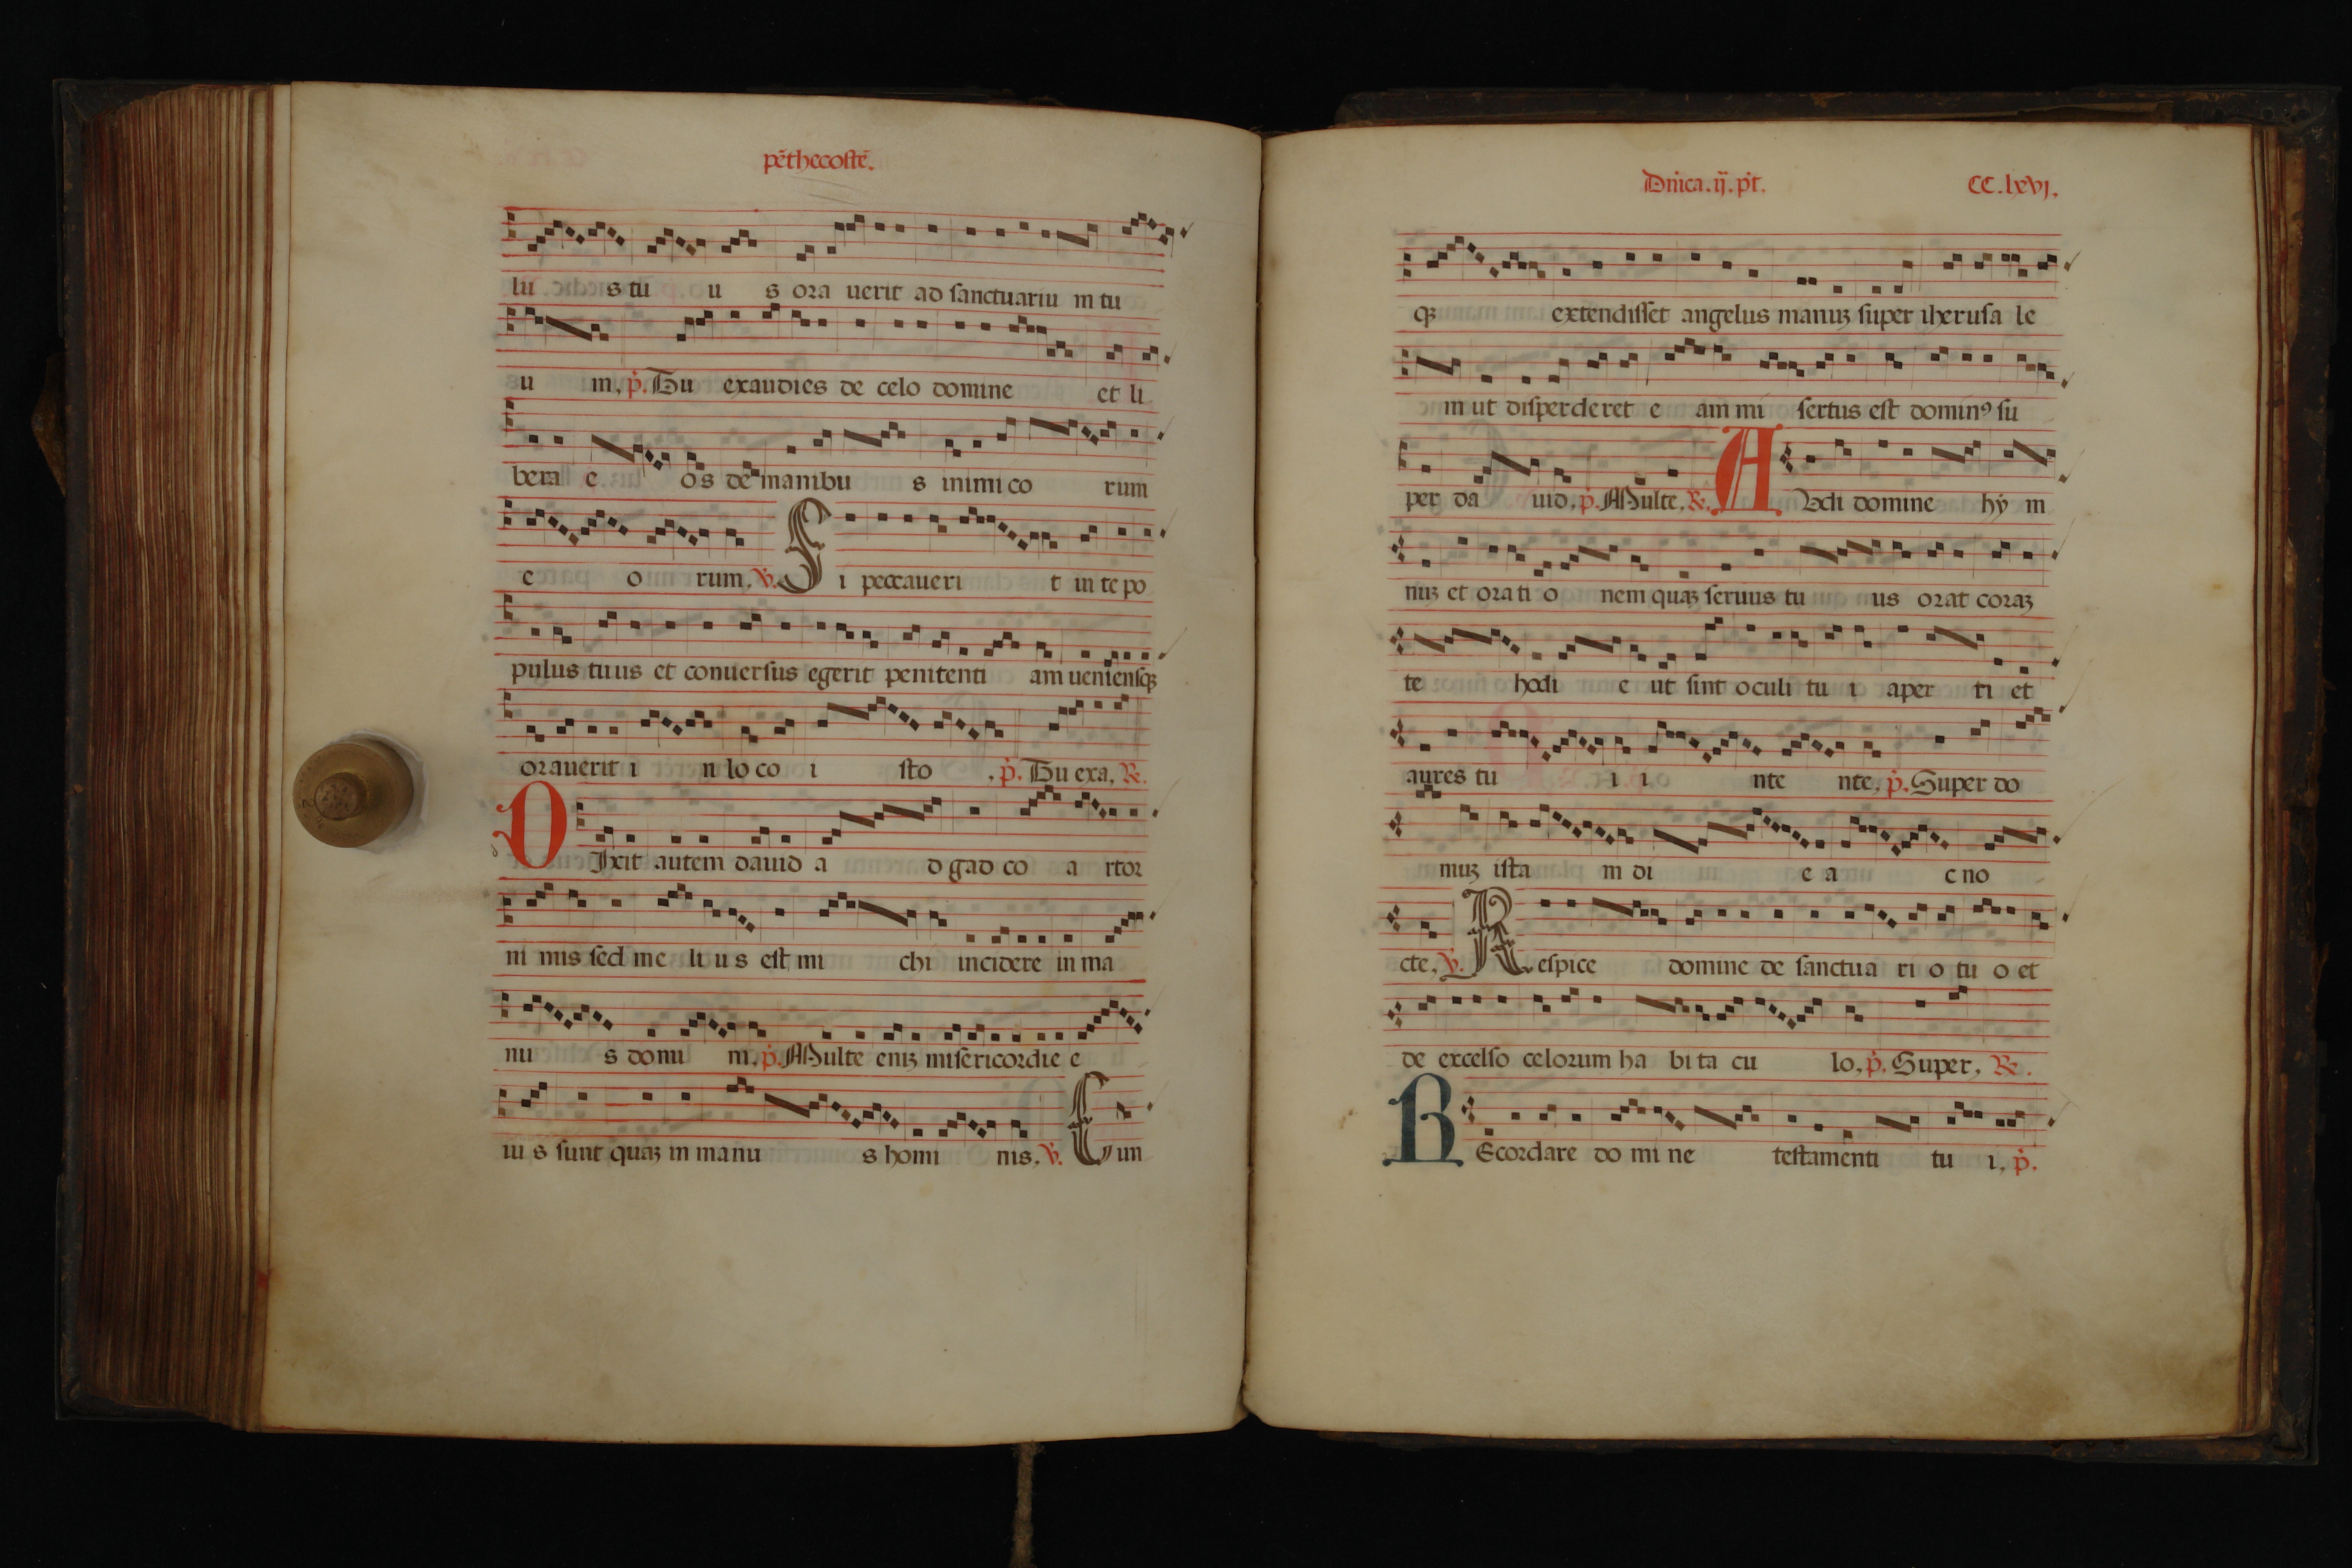 pēthecostē.
lu s tu u s ora uerit ad sanctuariu m tu
u m, p̄. Tu exaudies de celo domine et li
bera e os de manibu s inimi co rum
e o rum. v̄. S i peccaueri t in te po
pulus tuus et conuersus egerit penitenti am ueniensqꝫ
orauerit i n lo co i sto , p̄. Tu exa, R.
D Ixit autem dauid a d gad co a rtor
ni mis sed me li u s est mi chi incidere in ma
nu s domi m. p̄. Multe enīꝫ misericordie e
iu s sunt quaꝫ in manu s homi nis. v̄. C un
Dn̄ica. ij. pt̄. CC. lxvj.
qꝫ extendisset angelus manuꝫ super iherusa le
m ut disperderet e am mi sertus est dominꝰ su
per da uid, p̄. Multe, R. A Vdi domine hy m
nuꝫ et ora ti o nem quaꝫ seruus tu us orat coraꝫ
te hodi e ut sint oculi tu i aper ti et
aures tu i i nte nte, p̄. Super do
muꝫ ista m di e a c no
cte, v̄. R espice domine de sanctua ri o tu o et
de excelso celorum ha bi ta cu lo, p̄. Super, R.
R Ecordare do mi ne testamenti tu i, p̄.